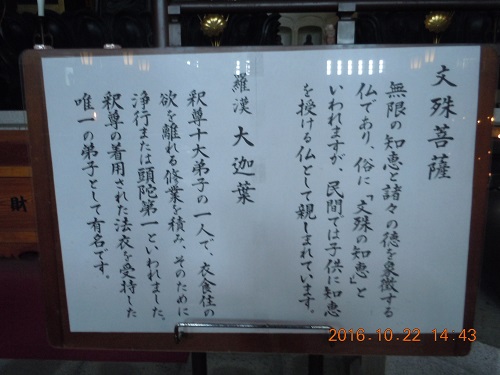 文殊菩薩
無限の知恵と諸々の徳を象徴する
仏であり、俗に「文殊の知恵」と
いわれますが、民間では子供に知恵
を授ける仏として親しまれています。
羅漢 大迦葉
釈尊十大弟子の一人で、衣食住の
欲を離れる修業を積み、そのために
浄行または頭陀第一といわれました。
釈尊の着用された法衣を受持した
唯一の弟子として有名です。
財
2016.10.22 14:43